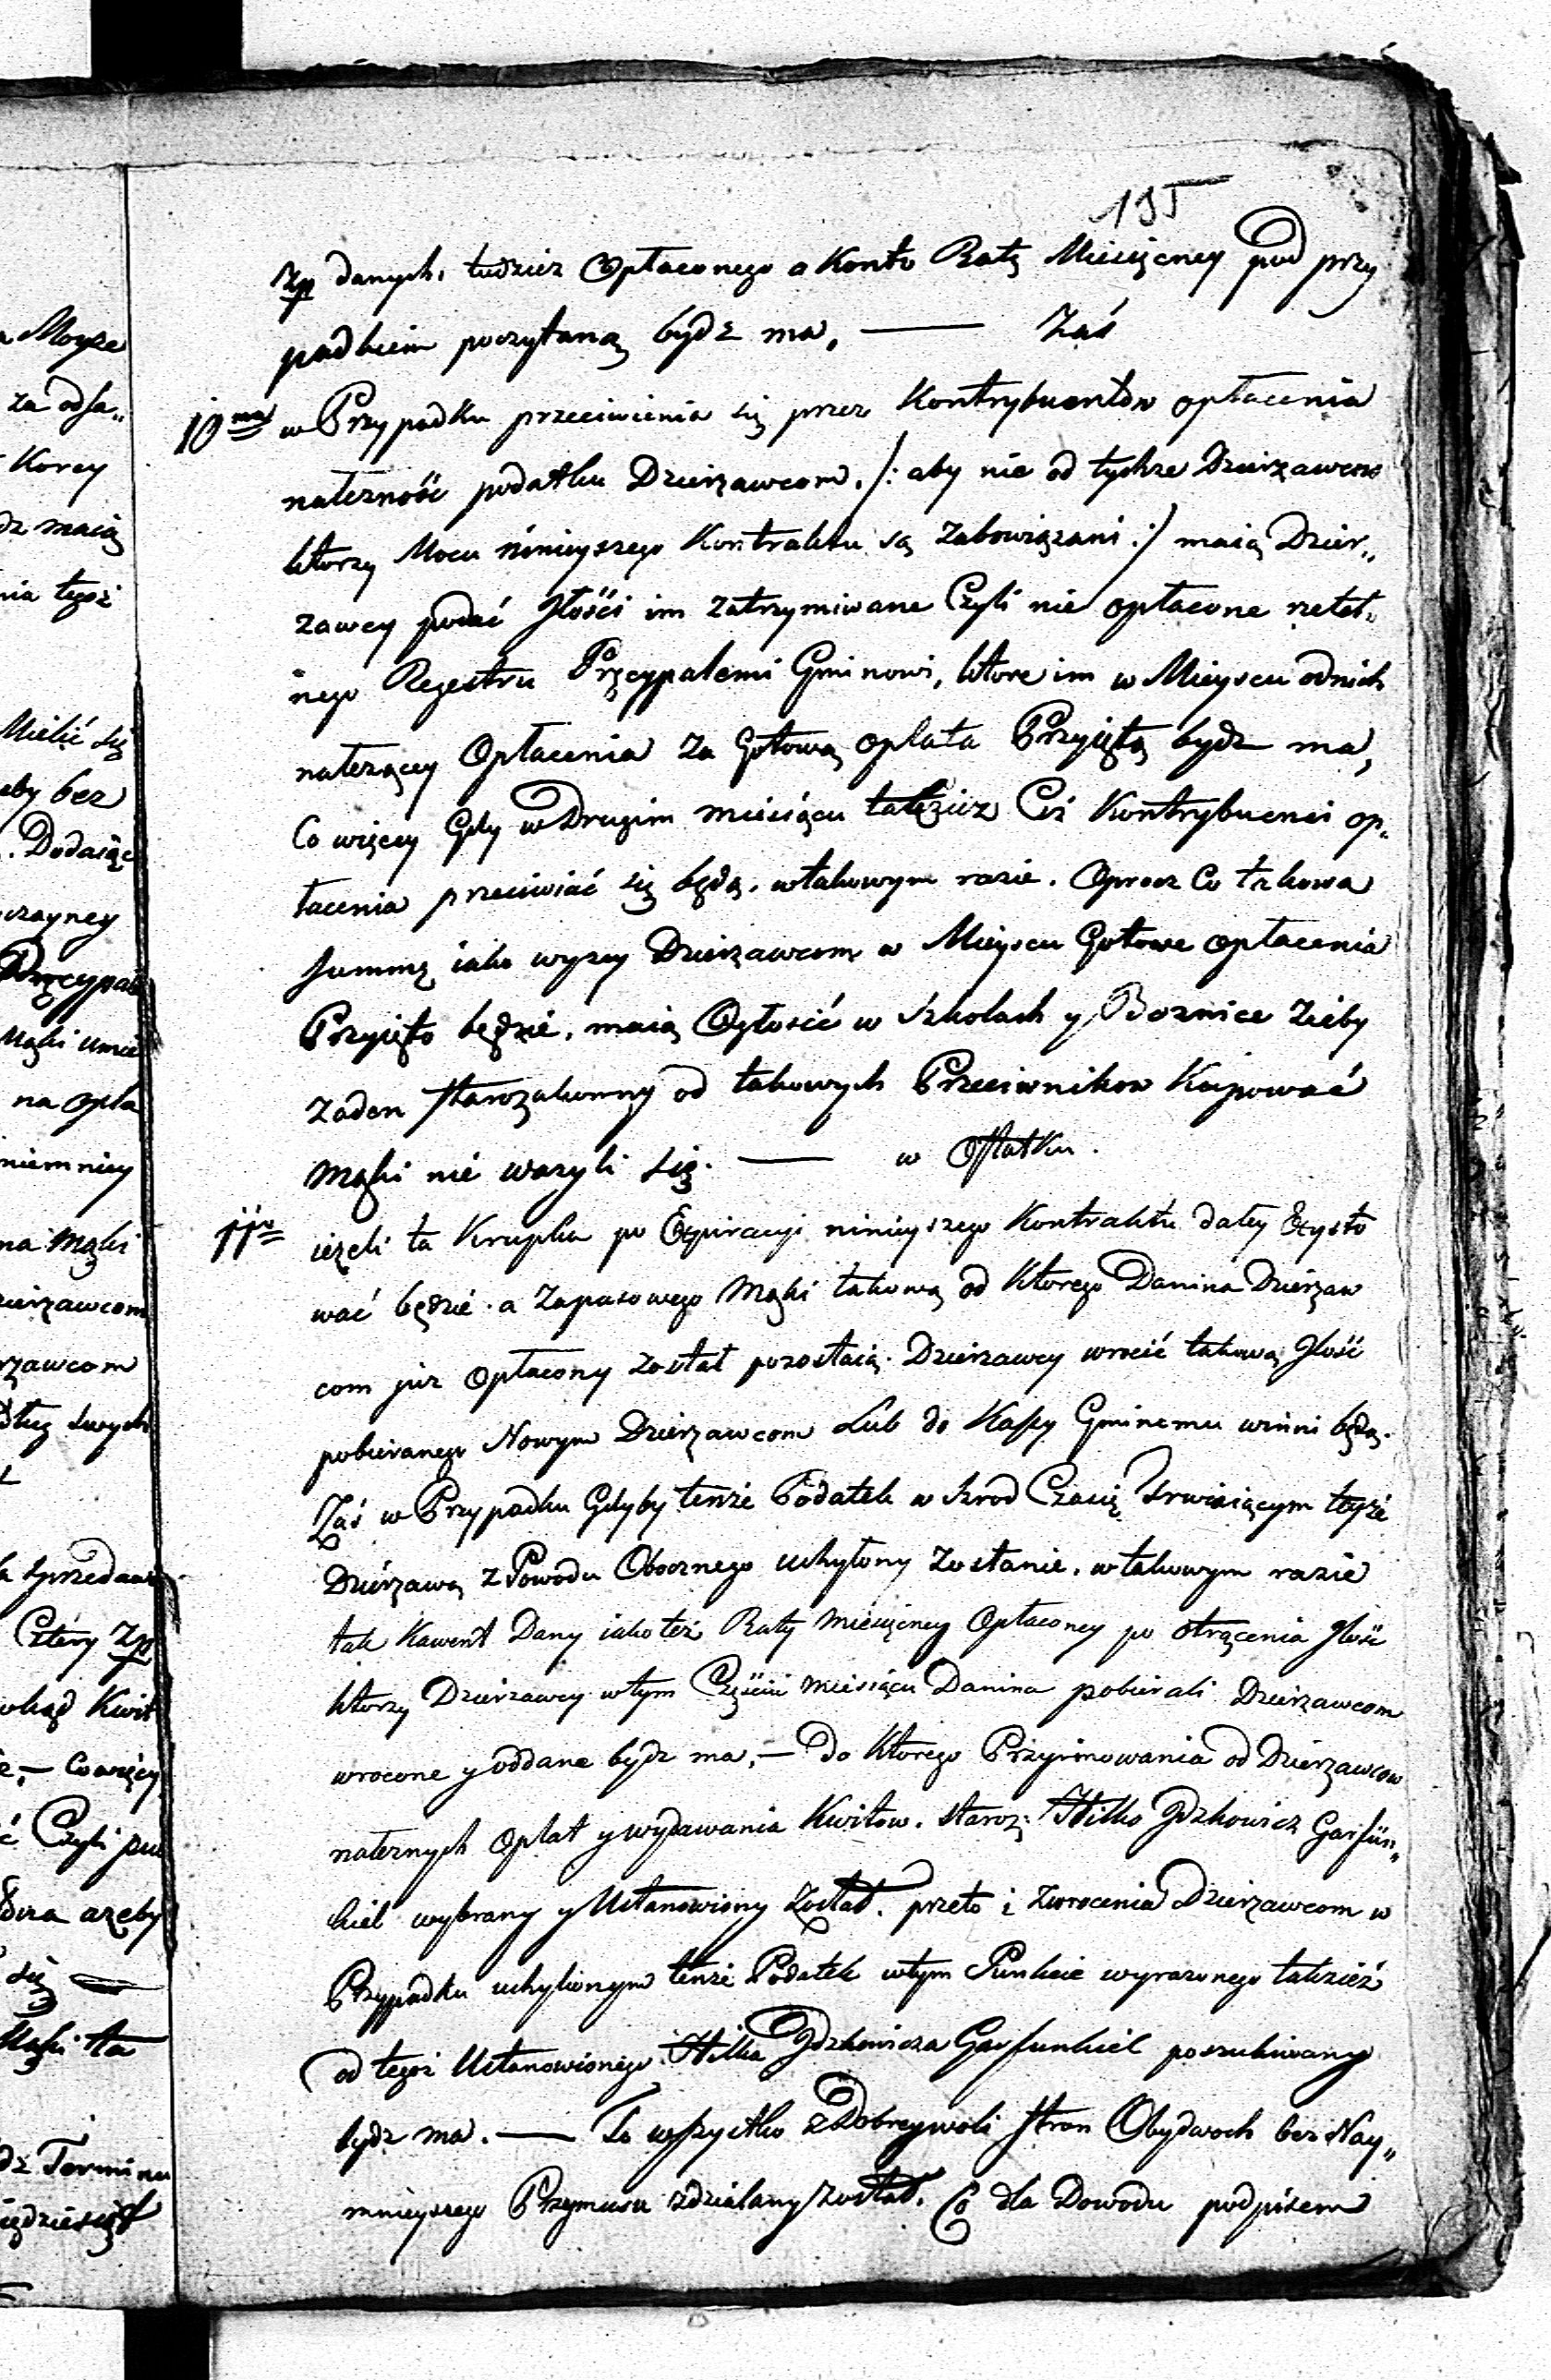 195
Zp danych, tudziez Opłaconego a Konto Ratę Miesięcney pod przy
padkiem poczytaną bydz ma, — Zaś
10mo w Przypadku przeciwienia się przez Kontrybuentow opłacenia
należność podatku Dzierżawcom, /: aby nie od tychze Dzierżawcow
ktorzy Mocu ninieyszego Kontraktu są Zabowiązani :/ maią Dzier„
zawcy podać Jłości im Zatrzymiwane Czyli nie opłacone retel„
nego Regestru Pręcypalemi Gminowi, ktore im w Mieyscu odnich
należącey Opłacenia Za Gotową opłata Przyiętą bydz ma,
Co więcey Gdy w Drugim miesiącu takzież Ciż Kontrybuenci op„
łacenia przeciwiać się będą, w takowym razie. Oprocz Co takowa
Summę iako wyzey Dzierżawcom w Mieyscu Gotowe opłacenia
Przyięto będzie, maią Ogłosić w Szkolach y Boznice Zieby
Zaden starozakonny od takowych Przeciwnikow Kupować
Mąki nie wazyli się. — w Ostatku.
11o ieżeli ta Krupka po Expiracyi ninieyszego Kontraktu daley Exysto
wać będzie. a Zapasowego Mąki takową od Ktorego Danina Dzierżaw
com już Opłacony został pozostaią. Dzierżawcy wrocić takową Jłość
pobieranego Nowym Dzierżawcom Lub do Kassy Gminemu winni będą.
Zaś w Przypadku Gdyby tenże Podatek w szrod Czasię trwaiącym teyże
Dzierżawą z Powodu Obocznego uchylony Zostanie, w takowym razie
tak Kawent Dany iako też Raty Miesięcney Opłaconey po otrącenia Jłość
ktorzy Dzierzawcy w tym Częściu miesiącu Danina pobierali Dzierżawcom
wrocone y oddane bydz ma, — do Ktorego Przyimowania od Dzierżawcow
należnych Opłat y wydawania Kwitow. Staroz: Hilko Jdzkowicz Garfün„
kiel wybrany y Ustanowiony Został, przeto i Zwrocenia Dzierżawcom w
Przypadku uchylionym tenże Podatek w tym Punkcie wyrazonego takzież
od tegoż Ustanowionego Hilka Jdzkowicza Garfunkiel poszukiwany
bydz ma. — To wszystko z Dobreywoli Stron Obydwoch bez Nay„
mnieyszego Przymusu zdziałany został. Co dla Dowodu podpisem